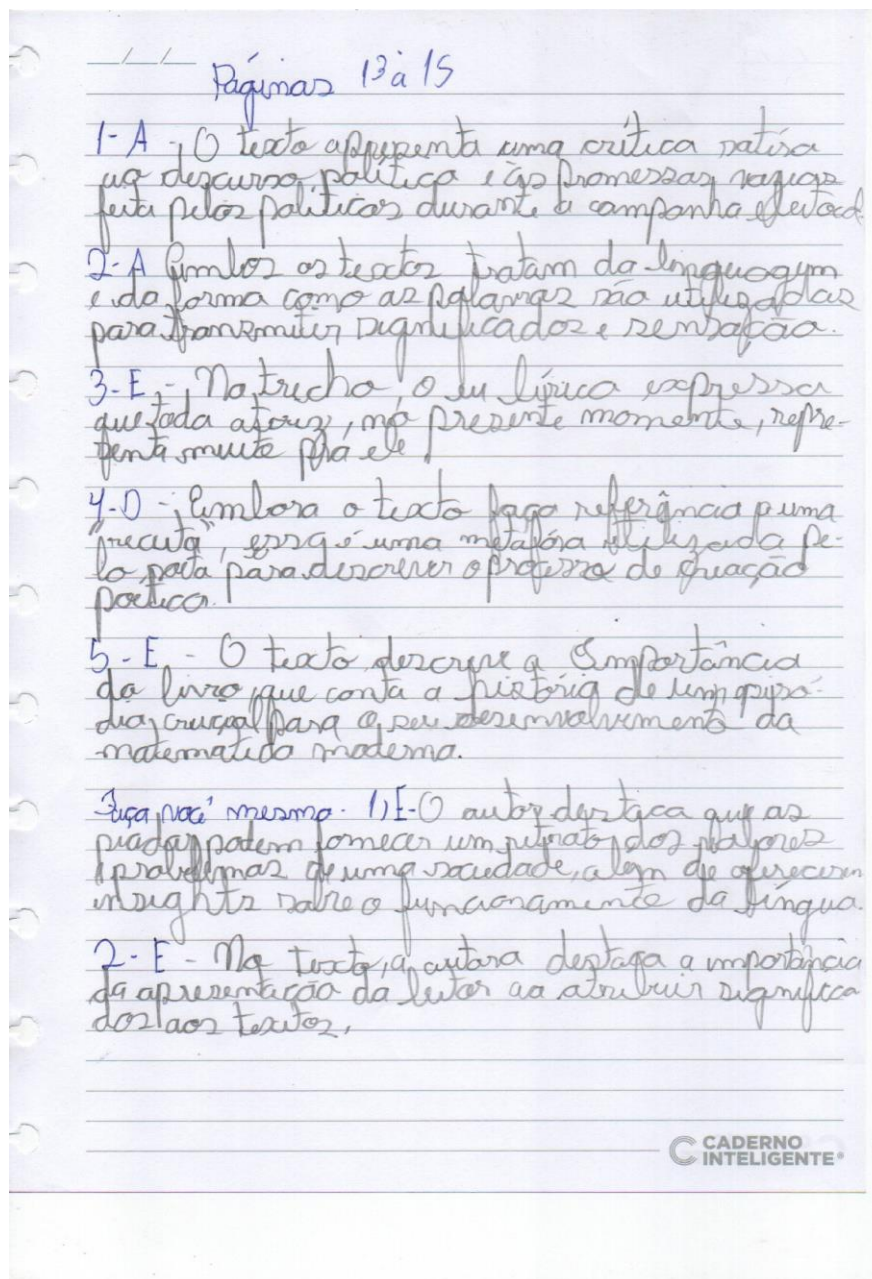 Páginas 13 à 15
1-A - O texto apresenta uma crítica satira
ao discurso político e às promessas vagas
feita pelos políticos durante a campanha eleitoral.
2-A Ambos os textos tratam da linguagem
e da forma como as palavras são utilizadas
para transmitir significados e sensação.
3-E - No trecho o eu lírico expressa
que toda atriz, no presente momento, repre-
senta muito prá ele
4-D - Embora o texto faça referência a uma
"receita", essa é uma metáfora utilizada pe-
lo poeta para descrever o processo de criação
poética.
5-E - O texto descreve a importância
do livro que conta a história de um episó-
dio crucial para o seu desenvolvimento da
matematica moderna.
Faça você mesmo. 1) E-O autor destaca que as
piadas podem fornecer um retrato dos valores
e problemas de uma sociedade, alem de oferecerem
insights sobre o funcionamento da língua.
2-E - No texto, a autora destaca a importância
da apresentação da leitor ao atribuir significa
dos aos textos.
CADERNO
INTELIGENTE